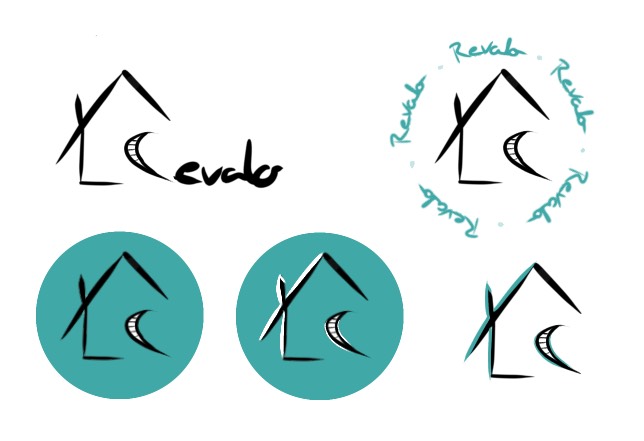 Revalo
Revalo
Revalo
Revalo
Revalo
Revalo